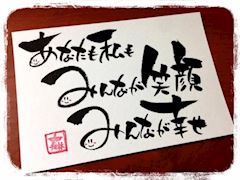 あなたも私も
みんなが笑顔
みんなが幸せ